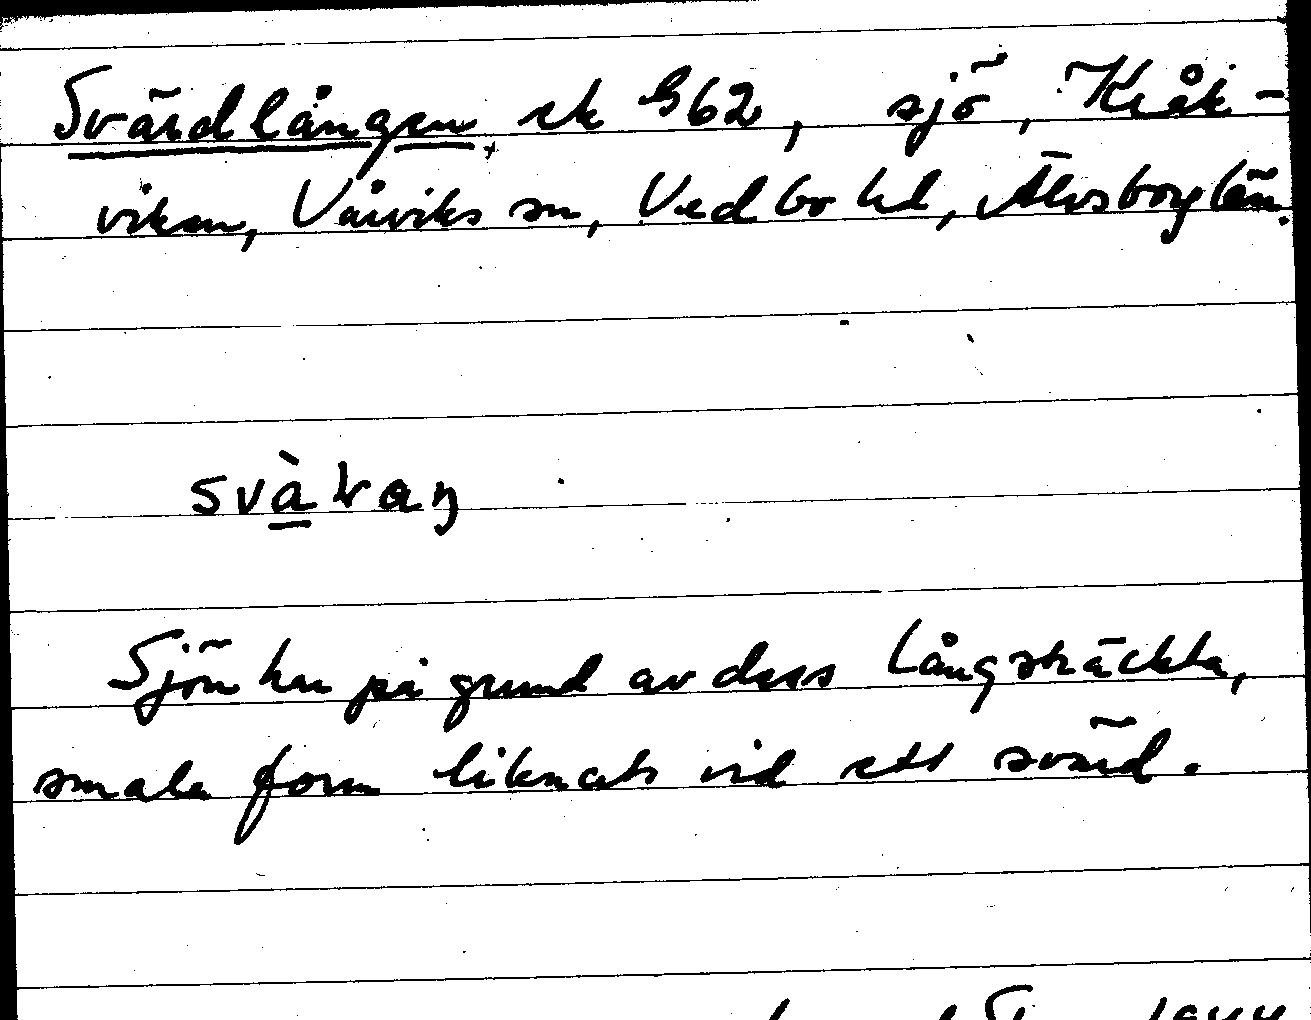 Svärdlången ek G62, sjö, Kråk-
viken, Vårviks sn, Vedbo hd, Älvsborg län.
svàran
Sjön har på grund av dess långsträckta,
smala form liknats vid ett svärd.